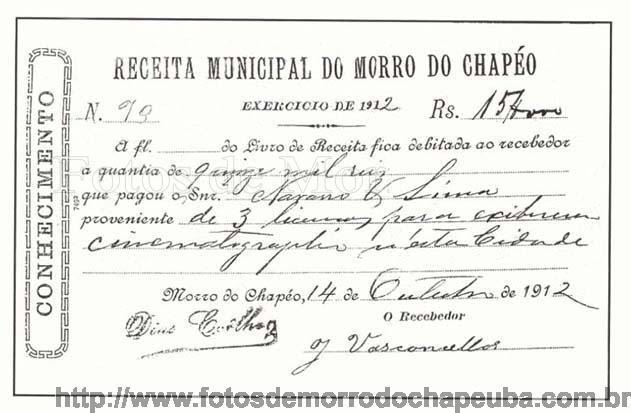 CONHECIMENTO
RECEITA MUNICIPAL DO MORRO DO CHAPÉO
N. 93 EXERCICIO DE 1912 Rs. 15$000
A fl. do Livro de Receita fica debitada ao recebedor
a quantia de quinze mil reis
que pagou o Snr. & Lima
proveniente de 3 licenças para exibirem
cinematographia n'esta Cidade
Morro do Chapéo, 14 de Outubro de 1912
O Recebedor
Dias Coêlho
J Vasconcellos
http://www.fotosdemorrodochapeuba.com.br